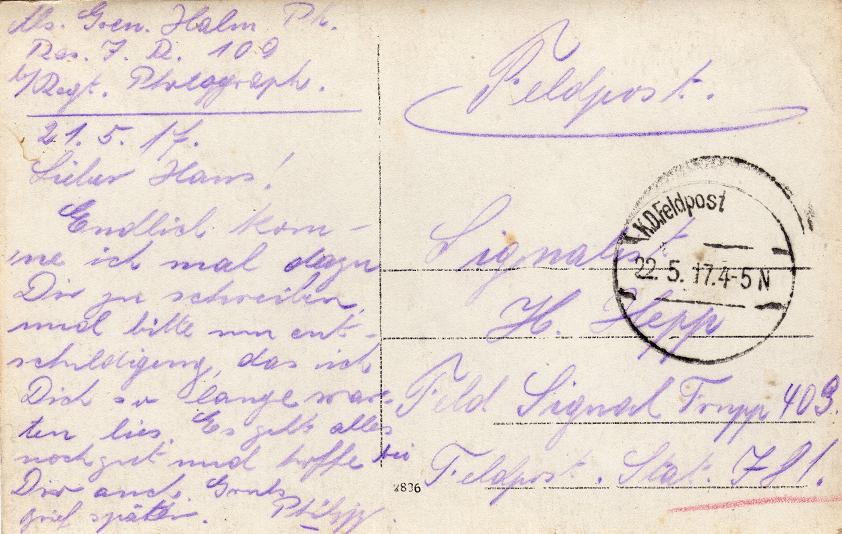 Abs. Gren. Halm Ph.
Res. I. R. 109
Regt. Photograph.
21. 5. 17.
Lieber Hans!
Endlich kom-
me ich mal dazu
Dir zu schreiben,
und bitte um ent-
schuldigung, das ich
Dich so lange war-
ten lies. Es geht alles
noch gut und hoffe bei
Dir auch. Gruß
Brief später. Philipp.
Feldpost.
K.D.Feldpost
22. 5. 17. 4-5 N
Signalist
H. Hepp
Feld Signal Trupp 409.
Feldpost. Stat. 781.
2836